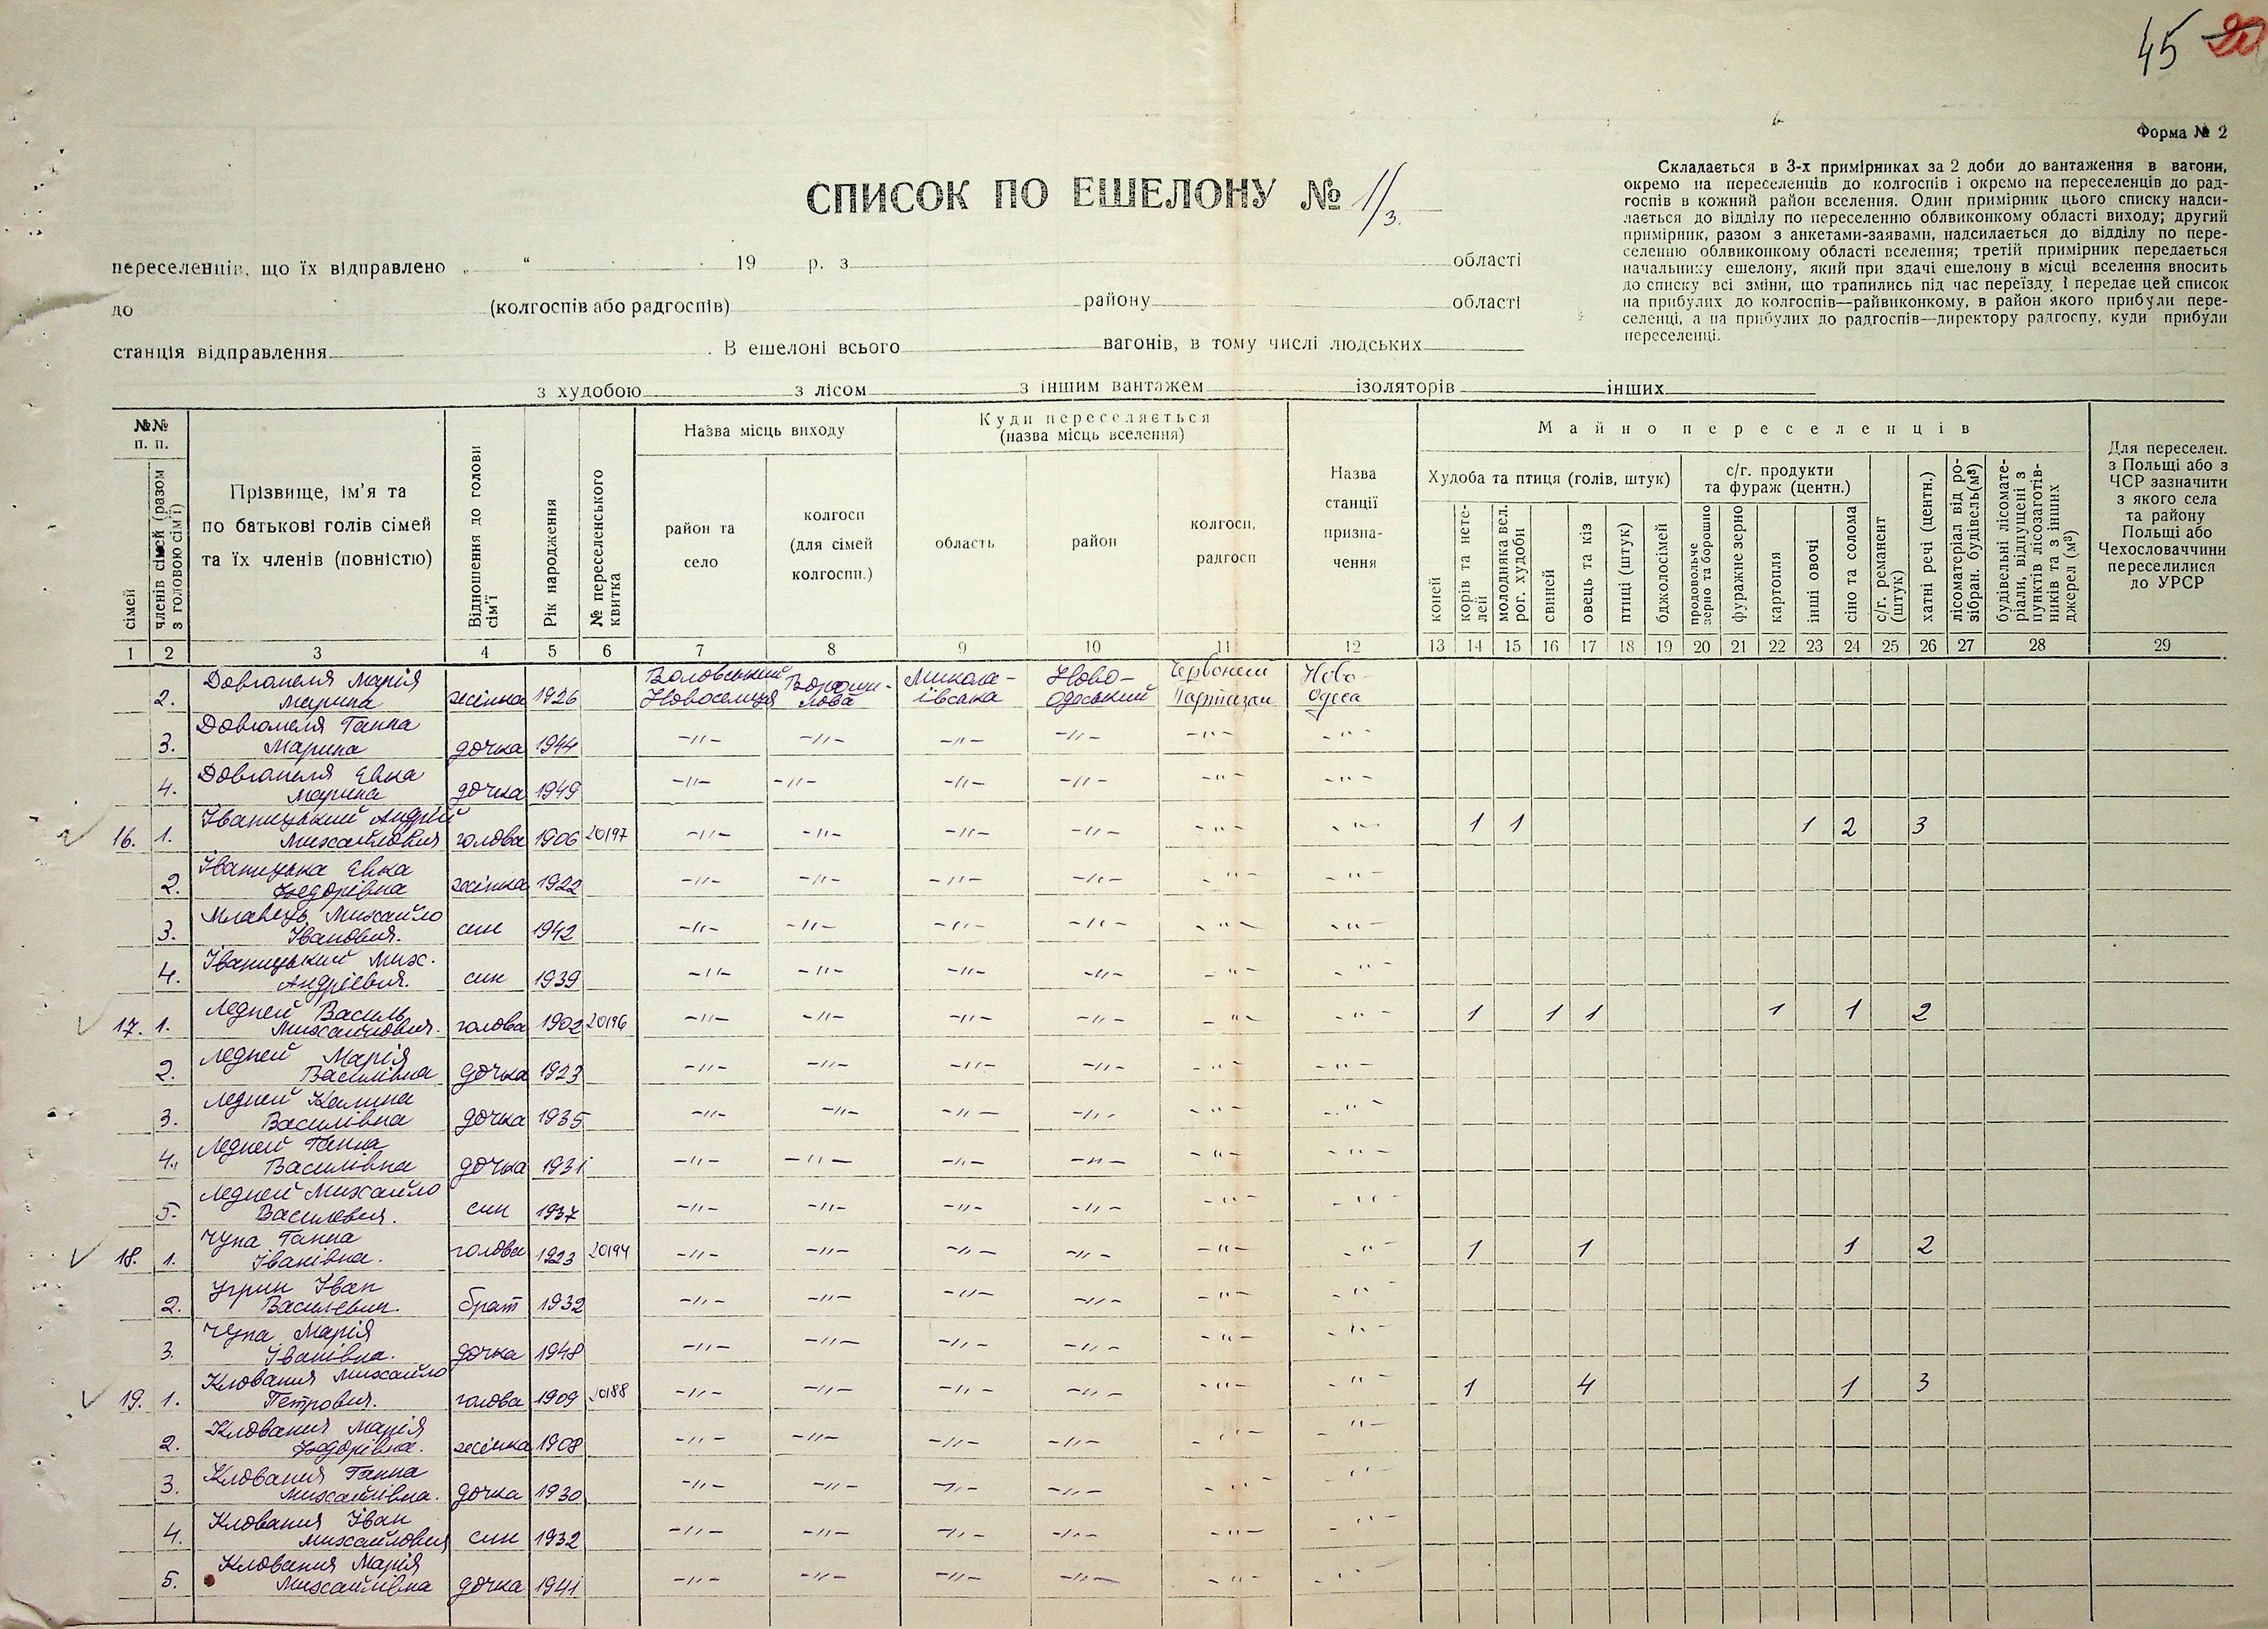 45
Форма № 2
СПИСОК ПО ЕШЕЛОНУ № 1/3.
Складається в 3-х примірниках за 2 доби до вантаження в вагони,
окремо на переселенців до колгоспів і окремо на переселенців до рад-
госпів в кожний район вселення. Один примірник цього списку надси-
лається до відділу по переселенню облвиконкому області виходу; другий
примірник, разом з анкетами-заявами, надсилається до відділу по пере-
селенню облвиконкому області вселення; третій примірник передається
начальнику ешелону, який при здачі ешелону в місці вселення вносить
до списку всі зміни, що трапились під час переїзду і передає цей список
на прибулих до колгоспів—райвиконкому, в район якого прибули пере-
селенці, а на прибулих до радгоспів—директору радгоспу, куди прибули
переселенці.
переселенців, що їх відправлено „ “ 19 р. з області
до (колгоспів або радгоспів) району області
станція відправлення . В ешелоні всього вагонів, в тому числі людських
з худобою з лісом з іншим вантажем ізоляторів інших
№№ п. п.
сімей
членів сімей (разом з головою сім'ї)
Прізвище, ім'я та
по батькові голів сімей
та їх членів (повністю)
Відношення до голови сім'ї
Рік народження
№ переселенського квитка
Назва місць виходу
район та
село
колгосп
(для сімей
колгоспн.)
Куди переселяється
(назва місць вселення)
область
район
колгосп,
радгосп
Назва
станції
призна-
чення
Майно переселенців
Худоба та птиця (голів, штук)
коней
корів та нете-
лей
молодняка вел.
рог. худоби
свиней
овець та кіз
птиці (штук)
бджолосімей
с/г. продукти
та фураж (центн.)
продовольче
зерно та борошно
фуражне зерно
картопля
інші овочі
сіно та солома
с/г. реманент
(штук)
хатні речі (центн.)
лісоматеріал від ро-
зібран. будівель(м³)
будівельні лісомате-
ріали, відпущені з
пунктів лісозаготів-
ників та з інших
джерел (м³)
Для переселен.
з Польщі або з
ЧСР зазначити
з якого села
та району
Польщі або
Чехословаччини
переселилися
до УРСР
1 2 3 4 5 6 7 8 9 10 11 12 13 14 15 16 17 18 19 20 21 22 23 24 25 26 27 28 29
2. Довганеля Марія Марина жінка 1926 Воловський Новоселиця Вороши-лова Микола-ївська Ново-Одеський Червоний Партизан Ново-Одеса
3. Довганеля Ганна Марина дочка 1944 -"- -"- -"- -"- -"- -"-
4. Довганеля Евка Марина дочка 1949 -"- -"- -"- -"- -"- -"-
16. 1. Іваницький Андрій Михайлович голова 1906 20197 -"- -"- -"- -"- -"- -"- 1 1 1 2 3
2. Іваницька Евка Федорівна жінка 1922 -"- -"- -"- -"- -"- -"-
3. Млавець Михайло Іванович. син 1942 -"- -"- -"- -"- -"- -"-
4. Іваницький Мих. Андрієвич. син 1939 -"- -"- -"- -"- -"- -"-
17. 1. Ледней Василь Михайлович. голова 1902 20196 -"- -"- -"- -"- -"- -"- 1 1 1 1 1 2
2. Ледней Марія Василівна дочка 1923 -"- -"- -"- -"- -"- -"-
3. Ледней Калина Василівна дочка 1935 -"- -"- -"- -"- -"- -"-
4. Ледней Ганна Василівна дочка 1931 -"- -"- -"- -"- -"- -"-
5. Ледней Михайло Василевич. син 1937 -"- -"- -"- -"- -"- -"-
18. 1. Чупа Ганна Іванівна. голова 1923 20194 -"- -"- -"- -"- -"- -"- 1 1 1 2
2. Угрин Іван Васильевич. брат 1932 -"- -"- -"- -"- -"- -"-
3. Чупа Марія Іванівна. дочка 1948 -"- -"- -"- -"- -"- -"-
19. 1. Клованич Михайло Петрович. голова 1909 20188 -"- -"- -"- -"- -"- -"- 1 4 1 3
2. Клованич Марія Федорівна. жінка 1908 -"- -"- -"- -"- -"- -"-
3. Клованич Ганна Михайлівна. дочка 1930 -"- -"- -"- -"- -"- -"-
4. Клованич Іван Михайлович син 1932 -"- -"- -"- -"- -"- -"-
5. Клованич Марія Михайлівна дочка 1941 -"- -"- -"- -"- -"- -"-